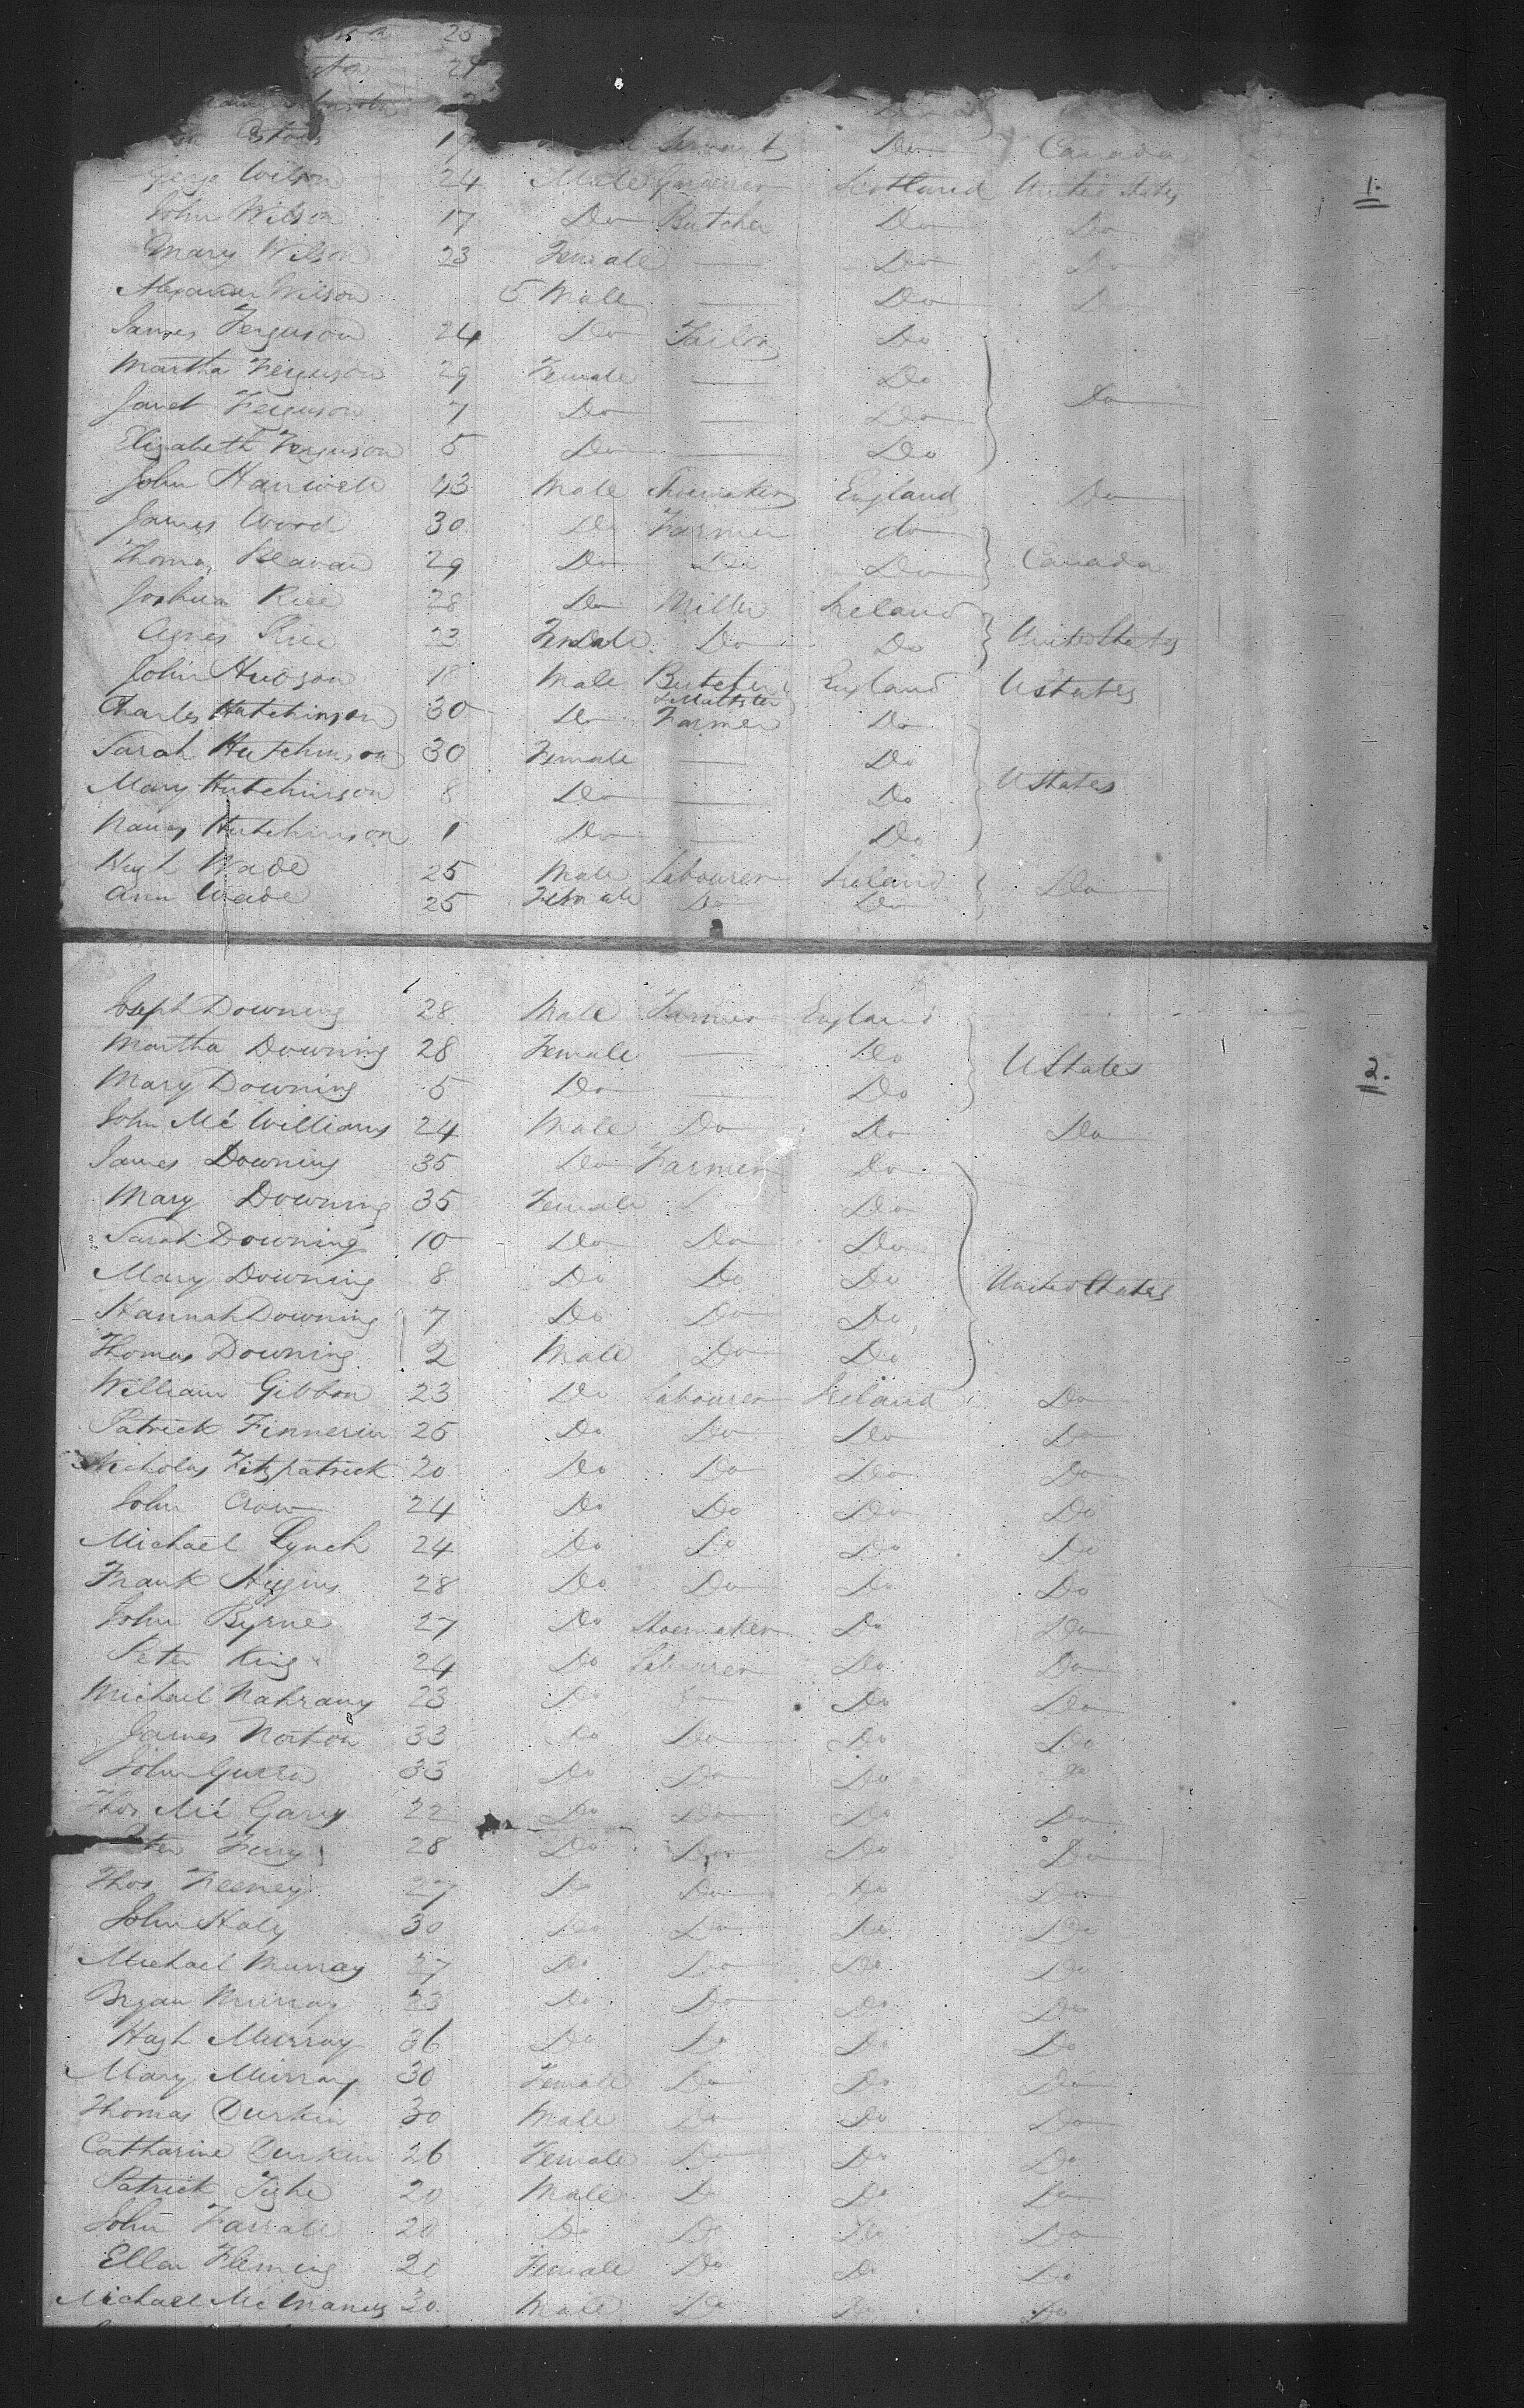 25
29
19 Servant Do Canada
George Wilson 24 Male Gardener Scotland United States
1.
John Wilson 17 Do Butcher Do Do
Mary Wilson 23 Female — Do Do
Alexander Wilson 5 Male — Do Do
James Ferguson 24 Do Tailor Do
Martha Ferguson 29 Female — Do
Janet Ferguson 7 Do — Do Do
Elizabeth Ferguson 5 Do — Do
John 43 Male Shoemaker England Do
James Wood 30 Do Farmer do
Thomas Beavan 29 Do Do Do Canada
Joshua Rice 28 Do Miller Ireland
Agnes Rice 23 Female Do Do United States
John Hudson 18 Male Butcher England U States
Charles Hutchinson 30 Do & Maltster Farmer Do
Sarah Hutchinson 30 Female — Do
Mary Hutchinson 8 Do — Do U States
Nancy Hutchinson 1 Do — Do
Hugh Wade 25 Male Labourer Ireland Do
Ann Wade 25 Female Do Do
Joseph Downing 28 Male Farmer England
Martha Downing 28 Female — Do U States
2.
Mary Downing 5 Do — Do
John Mc Williams 24 Male Do Do Do
James Downing 35 Do Farmer Do
Mary Downing 35 Female Do
Sarah Downing 10 Do Do Do
Mary Downing 8 Do Do Do United States
Hannah Downing 7 Do Do Do
Thomas Downing 2 Male Do Do
William Gibbon 23 Do Labourer Ireland Do
Patrick Finneran 25 Do Do Do Do
Nicholas Fitzpatrick 20 Do Do Do Do
John Crow 24 Do Do Do Do
Michael Lynch 24 Do Do Do Do
Frank Higgins 28 Do Do Do Do
John Byrne 27 Do Shoemaker Do Do
Peter King 24 Do Labourer Do Do
Michael 23 Do Do Do Do
James Norton 33 Do Do Do Do
John 33 Do Do Do Do
Thos Mc Garry 22 Do Do Do Do
28 Do Do Do Do
Thos Feeney 27 Do Do Do Do
John Haly 30 Do Do Do Do
Michael Murray 27 Do Do Do Do
Bryan Murray 23 Do Do Do Do
Hugh Murray 36 Do Do Do Do
Mary Murray 30 Female Do Do Do
Thomas Durkin 30 Male Do Do Do
Catharine Durkin 26 Female Do Do Do
Patrick Tighe 20 Male Do Do Do
John Farrall 20 Do Do Do Do
Ellen Fleming 20 Female Do Do Do
Michael Mc Manus 30 Male Do Do Do